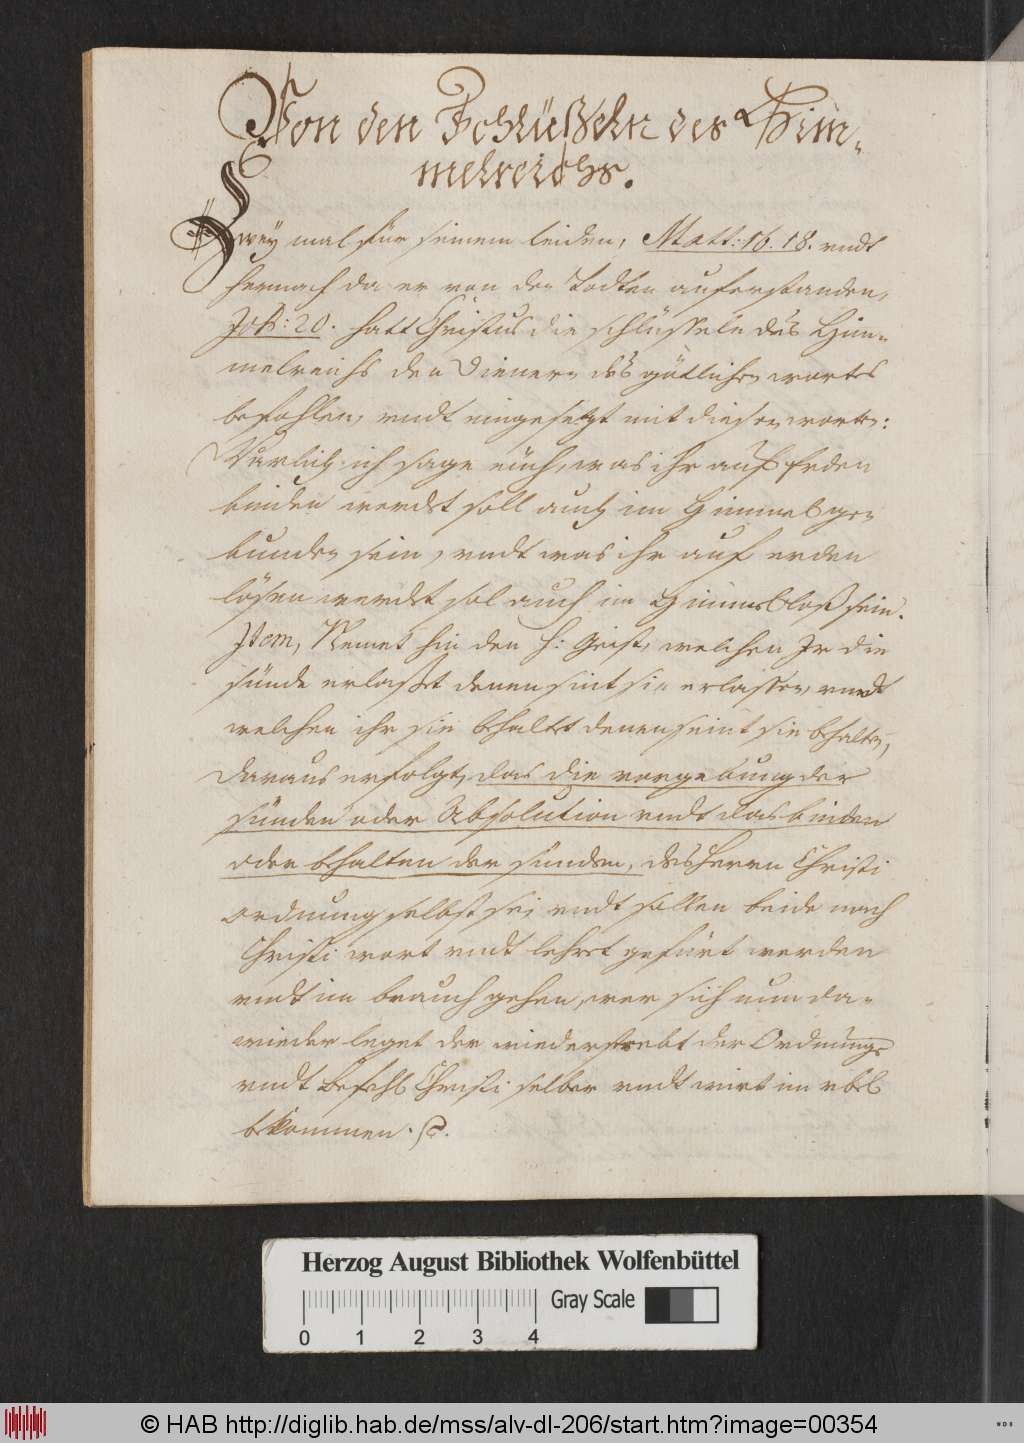 Von den Schlüßeln des Him-
melreichs.
Zwey mal für seinem leiden, Matt: 16. 18. undt
hernach da er von den Todten auferstanden,
Joh: 20. hatt Christus die schlüsseln des Him-
melreichs den Dienern des götlichen wortes
befohlen, undt eingesetzt mit diesen worten:
Warlich ich sage euch, was ihr auf Erden
binden werdet soll auch im Himmel ge-
bunden sein, undt was ihr auf erden
lösen werdet sol auch im Himmel loß sein.
Item, Nemet hin den H: Geist, welchen Ir die
sünde erlaßet denen sint sie erlassen, undt
welchen ihr sie behaltet denen seint sie behalten,
Daraus erfolgt, das die vorgebung der
sünden oder Absolution undt das binden
oder behalten der sünden, des Herrn Christi
ordnung selbst sei undt sollen beide nach
Christi wort undt lehret gefürt werden
undt im brauch gehen, wer sich nun da-
wieder leget der wiederstrebt der Ordnung
undt Befehl Christi selber undt wirt im vbel
bekommen.
Herzog August Bibliothek Wolfenbüttel
Gray Scale
0 1 2 3 4
© HAB http://diglib.hab.de/mss/alv-dl-206/start.htm?image=00354